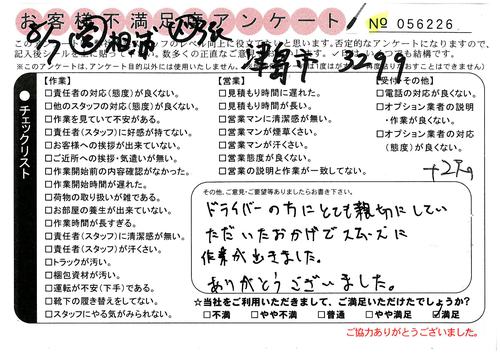 お客様不満足度アンケート
№ 056226
8/7
3299
【作業】
□責任者の対応(態度)が良くない。
□他のスタッフの対応(態度)が良くない。
□作業を見ていて不安がある。
□責任者(スタッフ)に好感が持てない。
□お客様への挨拶が出来ていない。
□ご近所への挨拶・気遣いが無い。
□作業開始前の内容確認がなかった。
□作業開始時間が遅れた。
□荷物の取り扱いが雑である。
□お部屋の養生が出来ていない。
□作業時間が長すぎる。
□責任者(スタッフ)に清潔感が無い。
□責任者(スタッフ)が汗くさい。
□トラックが汚い。
□梱包資材が汚い。
□運転が不安(下手)である。
□靴下の履き替えをしてない。
□スタッフにやる気がみられない。
【営業】
□見積もり時間に遅れた。
□見積もり時間が長い。
□営業マンに清潔感が無い。
□営業マンが煙草くさい。
□営業マンが汗くさい。
□営業態度が良くない。
□営業の説明と作業が一致してない。
【受付その他】
□電話の対応が良くない。
□オプション業者の説明
・作業が良くない。
□オプション業者の対応
(態度)が良くない。
●チェックリスト
その他、ご意見・ご要望等ありましたらお書き下さい。
ドライバーの方にとても親切にしてい
ただいたおかげでスムーズに
作業が出きました。
ありがとうございました。
☆当社をご利用いただきまして、ご満足いただけたでしょうか?
□不満 □やや不満 □普通 □やや満足 ☑満足
ご協力ありがとうございました。